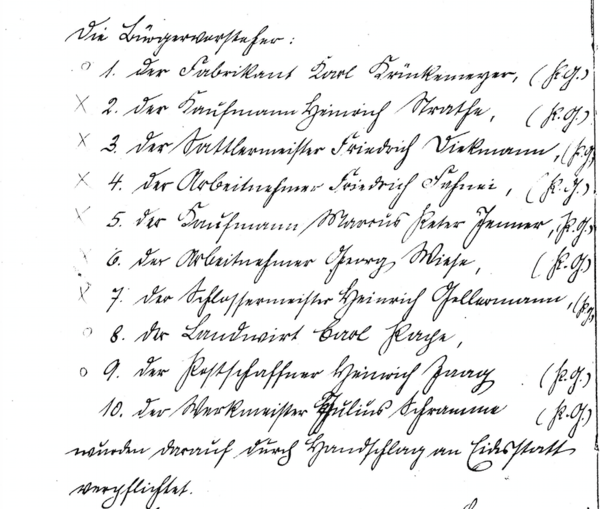 Die Bürgervorsteher:
o 1. der Fabrikant Karl Krückemeyer, (P.G.)
x 2. der Kaufmann Heinrich Strathe, (P.G.)
x 3. der Sattlermeister Friedrich Diekmann, (P.G.)
x 4. der Arbeitnehmer Friedrich (P.G.)
x 5. der Kaufmann Marcus Peter Jenner, (P.G.)
x 6. der Arbeitnehmer Georg Wiese, (P.G.)
x 7. der Schlossermeister Heinrich Gellermann, (P.G.)
o 8. der Landwirt Carl
o 9. der Postschaffner Heinrich (P.G.)
10. der Werkmeister Julius Schramme (P.G.)
wurden darauf durch Handschlag an Eidesstatt
verpflichtet.